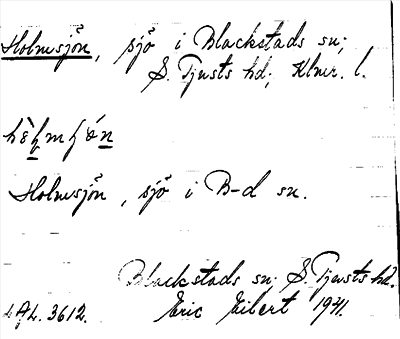 Holmsjön, sjö i Blackstads sn;
S. Tjusts hd; Klmr. l.
Holmsjön, sjö i B-d sn.
Blackstads sn; S. Tjusts hd.
Eric Eilert 1941.
3612.